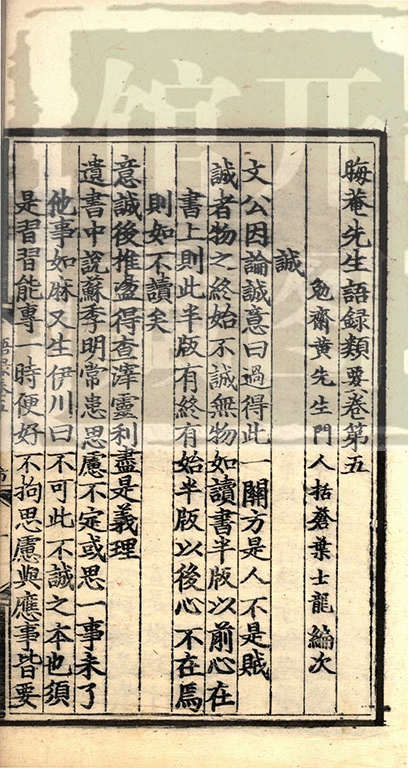 晦菴先生語録類要卷第五
勉齋黄先生門人括蒼葉士龍編次
誠
文公因論誠意曰過得此一關方是人不是賊
誠者物之終始不誠無物如讀書半版以前心在
書上則此半版有終有始半版以後心不在焉
則如不讀矣
意誠後推盪得查滓靈利盡是義理
遺書中説蘇季明常患思慮不定或思一事未了
他事如麻又生伊川曰不可此不誠之本也須
是習習能專一時便好不拘思慮與應事皆要